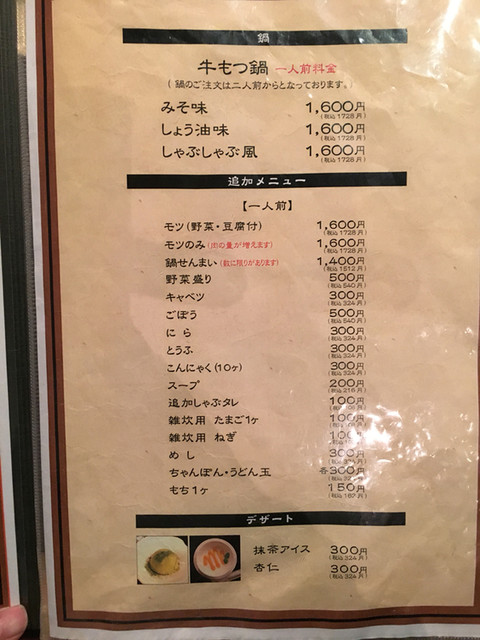 鍋
牛もつ鍋 一人前料金
(鍋のご注文は二人前からとなっております。)
みそ味 1,600円
(税込1728円)
しょう油味 1,600円
(税込1728円)
しゃぶしゃぶ風 1,600円
(税込1728円)
追加メニュー
【一人前】
モツ(野菜・豆腐付) 1,600円
(税込1728円)
モツのみ(肉の量が増えます) 1,600円
(税込1728円)
鍋せんまい(数に限りがあります) 1,400円
(税込1512円)
野菜盛り 500円
(税込540円)
キャベツ 300円
(税込324円)
ごぼう 500円
(税込540円)
にら 300円
(税込324円)
とうふ 300円
(税込324円)
こんにゃく(10ヶ) 300円
(税込324円)
スープ 200円
(税込216円)
追加しゃぶタレ 100円
雑炊用 たまご1ヶ 100円
雑炊用 ねぎ 100円
めし 300円
ちゃんぽん・うどん玉 各300円
もち1ヶ 150円
(税込162円)
デザート
抹茶アイス 300円
(税込324円)
杏仁 300円
(税込324円)